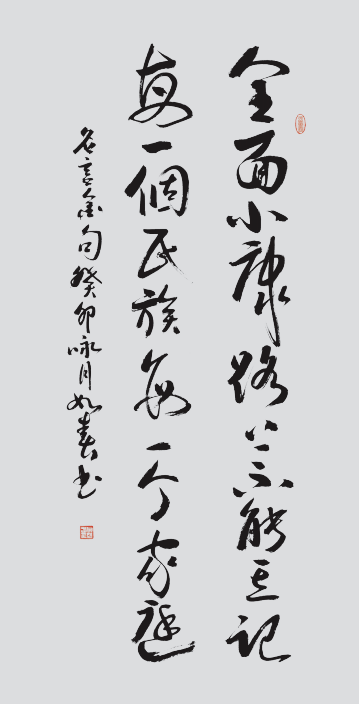 全面小康路上不能忘记
每一個民族每一个家庭
名言金句癸卯咏月如春书